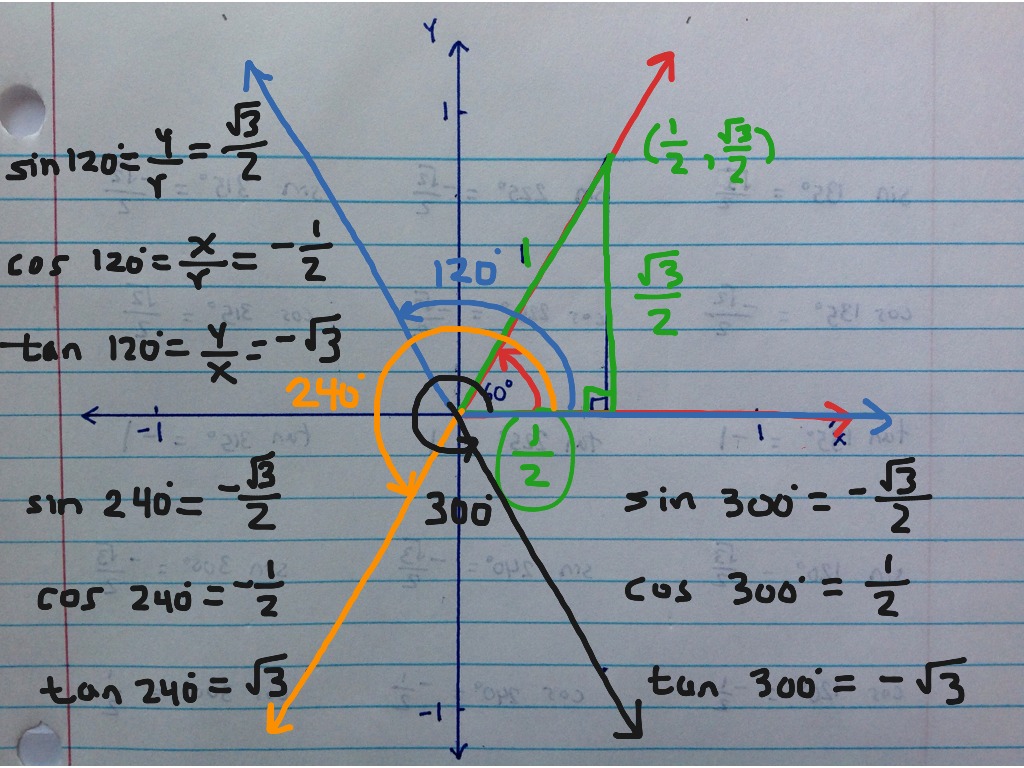 Y
1
(1/2, √3/2)
sin 120° = y/r = √3/2
1
cos 120° = x/r = -1/2
120°
√3/2
tan 120° = y/x = -√3
240°
60°
-1
1
x
1/2
sin 240° = -√3/2
300°
sin 300° = -√3/2
cos 240° = -1/2
cos 300° = 1/2
tan 240° = √3
tan 300° = -√3
-1